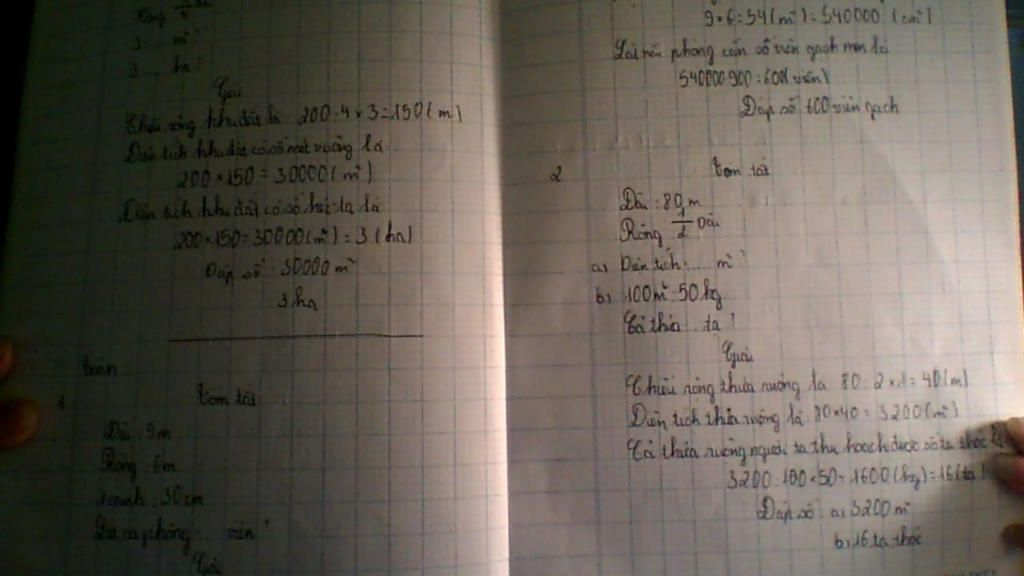 Rộng
? m²
? ha
Giải
Chiều rộng khu đất là: 200 : 4 x 3 = 150 (m)
Diện tích khu đất có số mét vuông là
200 x 150 = 30000 (m²)
Diện tích khu đất có số héc ta là
200 x 150 = 30000 (m²) = 3 (ha)
Đáp số : 30000 m²
3 ha
toán:
1 Tóm tắt
Dài : 9m
Rộng : 6m
1 cạnh : 30 cm
Lát cả phòng ... viên ?
Giải
9 x 6 = 54 (m²) = 540000 (cm²)
Lát nền phòng cần số viên gạch men là
540000 : 900 = 600 (viên)
Đáp số 600 viên gạch
2 Tóm tắt
Dài : 80 m
Rộng 1/2 Dài
a, Diện tích : ... m² ?
b, 100m² : 50 kg
Cả thửa : .. tạ ?
Giải
Chiều rộng thửa ruộng là 80 : 2 x 1 = 40 (m)
Diện tích thửa ruộng là : 80 x 40 = 3200 (m²)
Cả thửa ruộng người ta thu hoạch được số tạ thóc là
3200 : 100 x 50 = 1600 (kg) = 16 (tạ)
Đáp số : a, 3200 m²
b, 16 tạ thóc